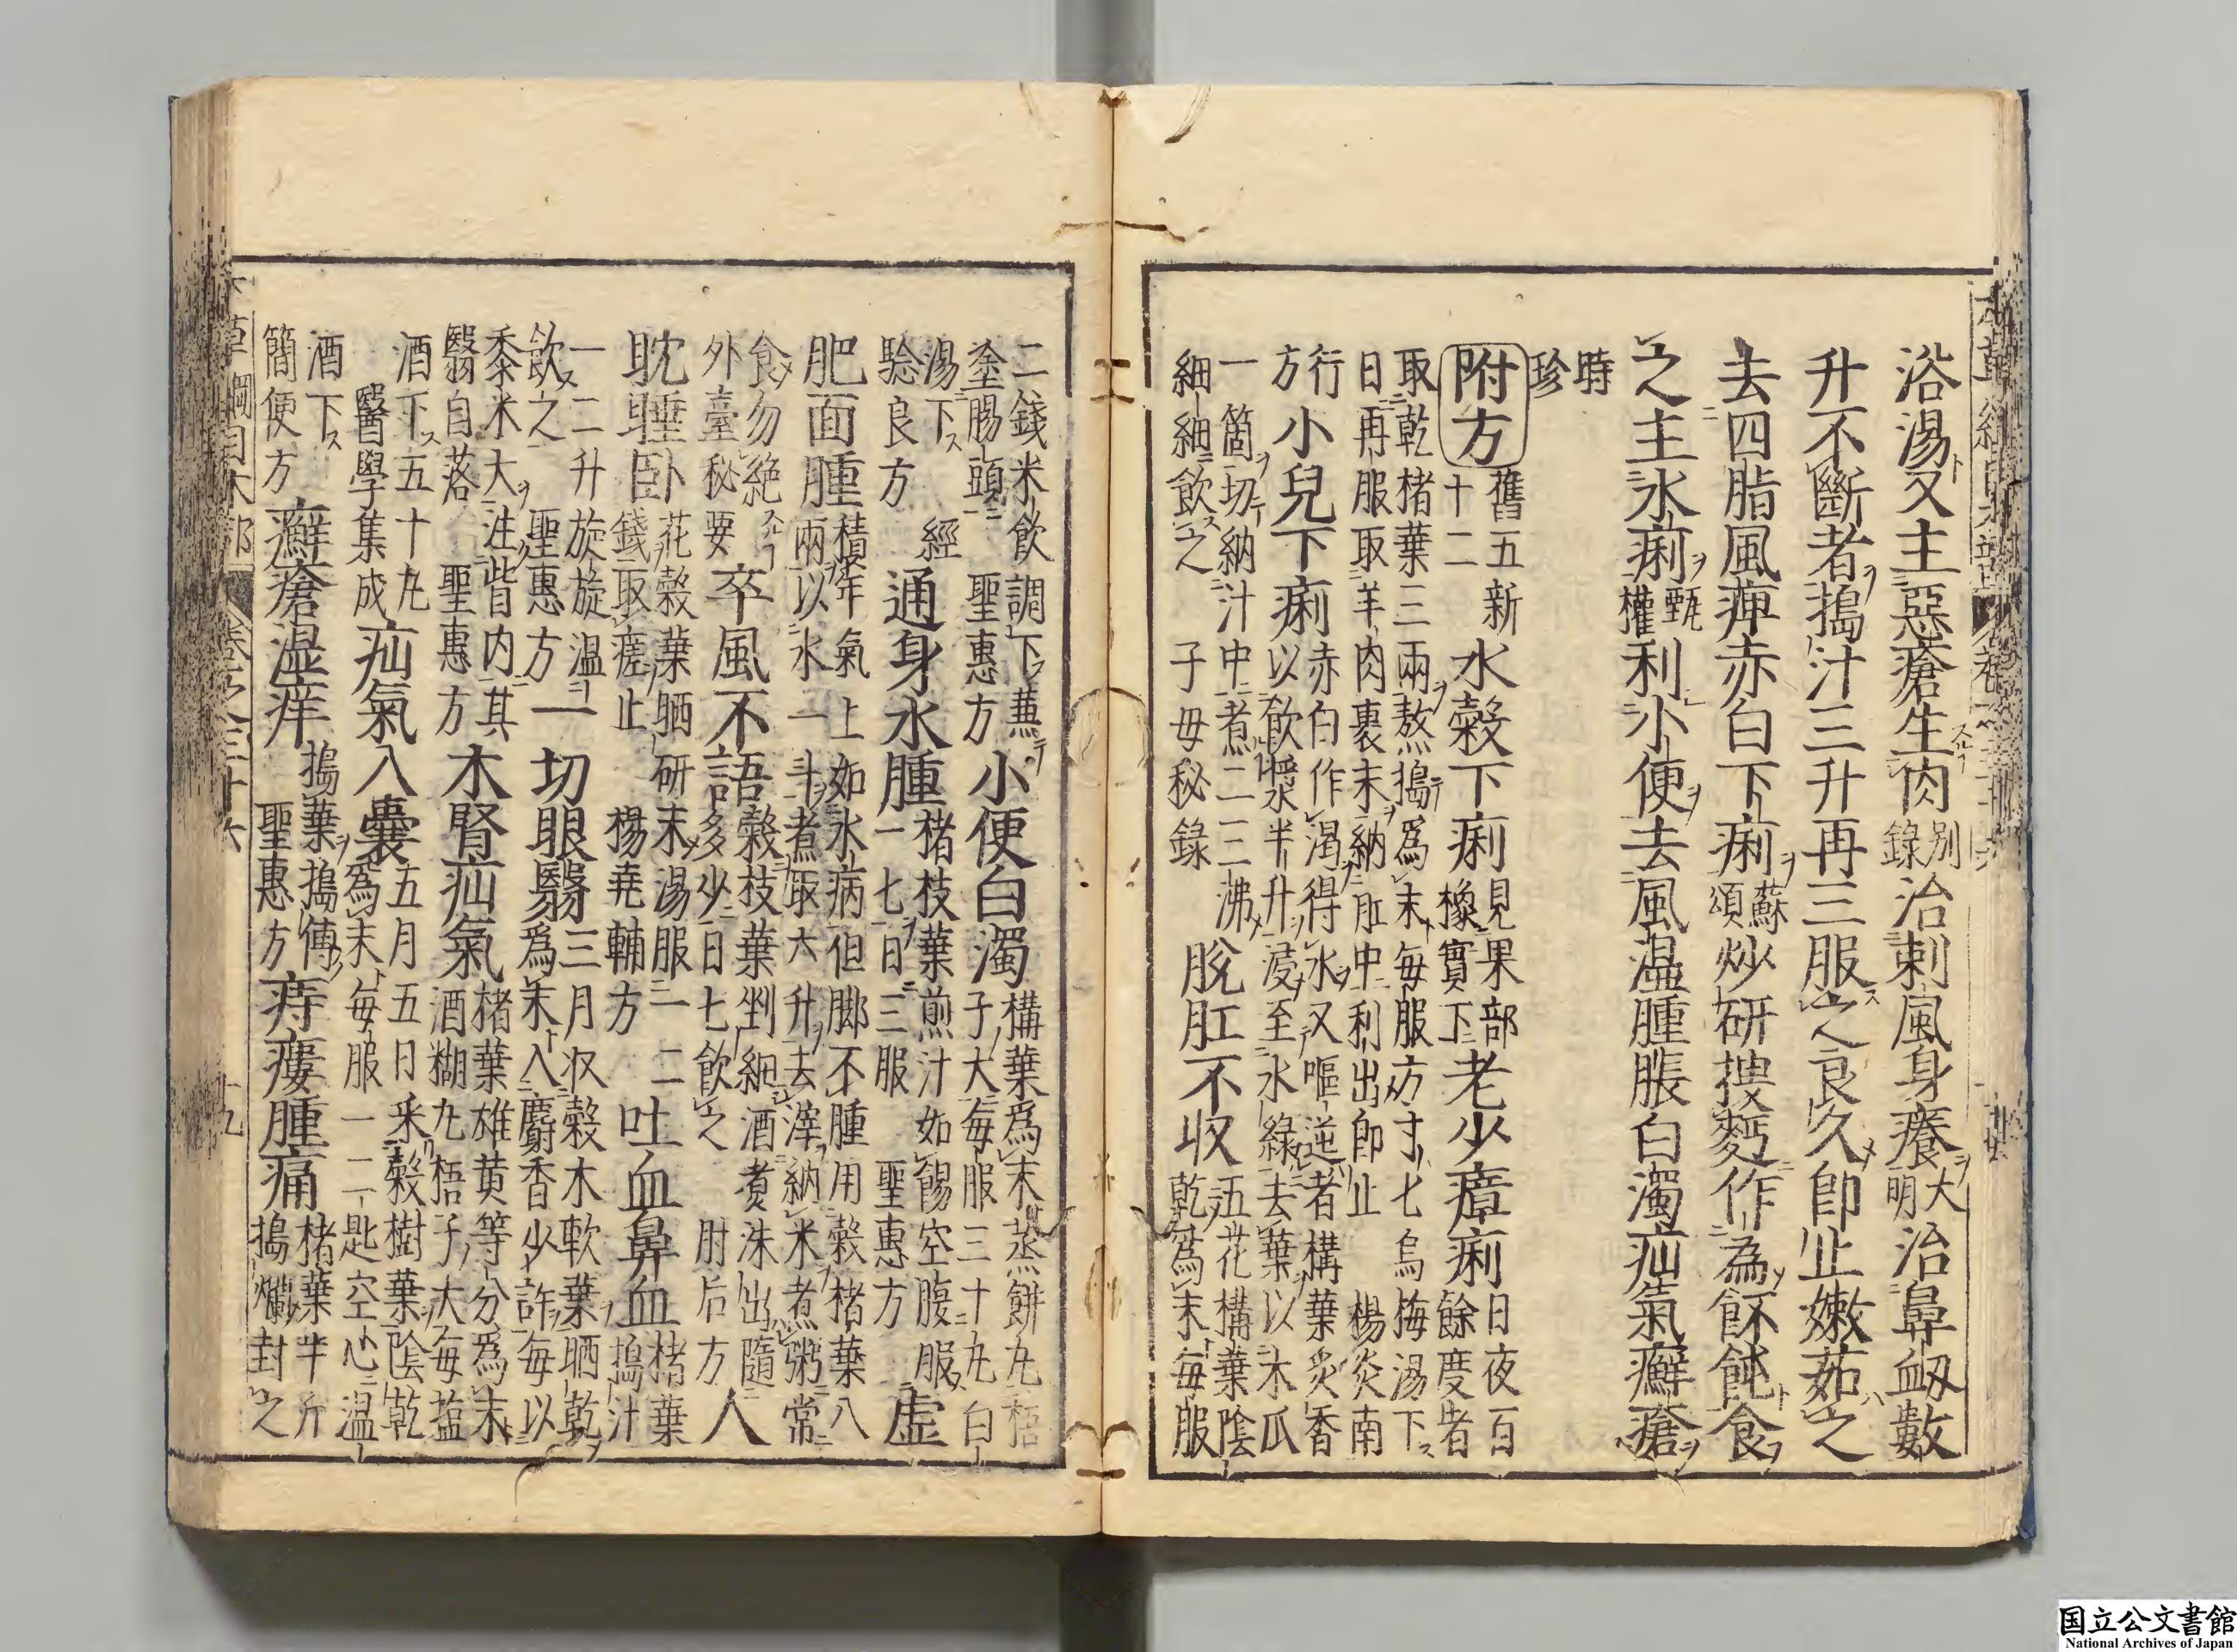 本草綱目木部 卷之三十六
浴湯又主惡瘡生肉別錄治刺風身癢大明治鼻衄數
升不斷者搗汁三升再三服之良久即止嫩茹之
去四脂風痺赤白下痢蘇頌炒研搜麪作為飥飩食
之主水痢甄權利小便去風湿腫脹白濁疝氣癬瘡
時珍
附方舊五新十二水穀下痢見果部橡實下老少瘴痢日夜百餘度者
取乾楮葉三兩熬搗為末每服方寸匕烏梅湯下日再服取羊肉裹末納肛中利出即止楊炎南
行方小兒下痢赤白作渴得水又嘔逆者構葉炙香以飲漿半升浸至水綠去葉以木瓜
一箇切納汁中煮二三沸細細飲之子母秘錄脫肛不収五花構葉陰乾為末每服
二錢米飲調下兼塗腸頭聖惠方小便白濁構葉為末蒸餅丸梧子大每服三十丸白
湯下經驗良方通身水腫楮枝葉煎汁如餳空腹服一七日三服聖惠方虛
肥面腫積年氣上如水病但腳不腫用穀楮葉八兩以水一斗煮取六升去滓納米煮粥常
食勿絕外臺秘要卒風不語穀枝葉剉細酒煮沫出隨多少日七飲之肘后方人
耽睡卧花穀葉晒研末湯服一二錢取瘥止楊堯輔方吐血鼻血楮葉搗汁
一二升旋旋温飲之聖惠方一切眼翳三月収穀木軟葉晒乾為末入麝香少許每以
黍米大注眥内其翳自落聖惠方木腎疝氣楮葉雄黄等分為末酒糊丸梧子大每盐
酒下五十丸醫學集成疝氣入囊五月五日采穀樹葉陰乾為末每服一二匙空心温
酒下簡便方癬瘡湿痒搗葉搗傅聖惠方痔瘻腫痛楮葉半斤搗爛封之
草綱目木部 卷之三十六 十九
国立公文書館
National Archives of Japan